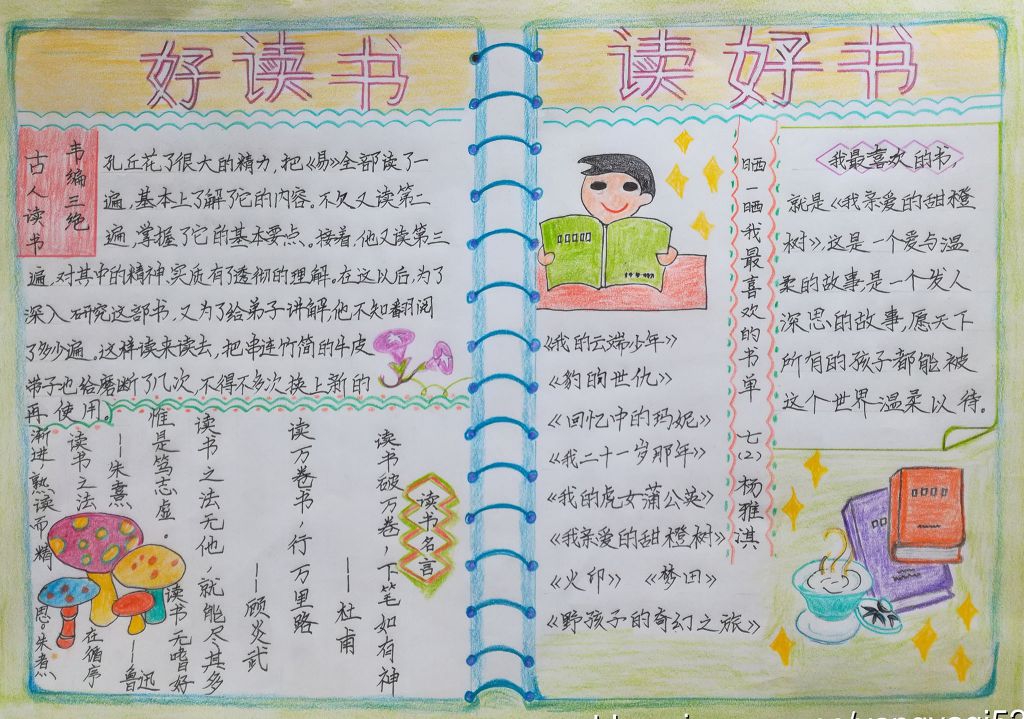 好读书
韦编三绝
古人读书
孔丘花了很大的精力,把《易》全部读了一
遍,基本上了解了它的内容。不久又读第二
遍,掌握了它的基本要点。接着,他又读第三
遍,对其中的精神、实质有了透彻的理解。在这以后,为了
深入研究这部书,又为了给弟子讲解,他不知翻阅
了多少遍。这样读来读去,把串连竹简的牛皮
带子也给磨断了几次,不得不多次换上新的
再使用。
读书名言
读书破万卷,下笔如有神
——杜甫
读万卷书,行万里路
——顾炎武
读书之法无他,就能尽其多
惟是笃志虚。
——朱熹
读书之法
在循序
渐进,熟读而精
思。朱熹
读书无嗜好
——鲁迅
读好书
晒一晒我最喜欢的书单
七(2) 杨雅淇
《我的云端少年》
《豹的世仇》
《回忆中的玛妮》
《我二十一岁那年》
《我的虎女蒲公英》
《我亲爱的甜橙树》
《火印》 《梦田》
《野孩子的奇幻之旅》
我最喜欢的书,
就是《我亲爱的甜橙
树》,这是一个爱与温
柔的故事,是一个发人
深思的故事,愿天下
所有的孩子都能被
这个世界温柔以待。